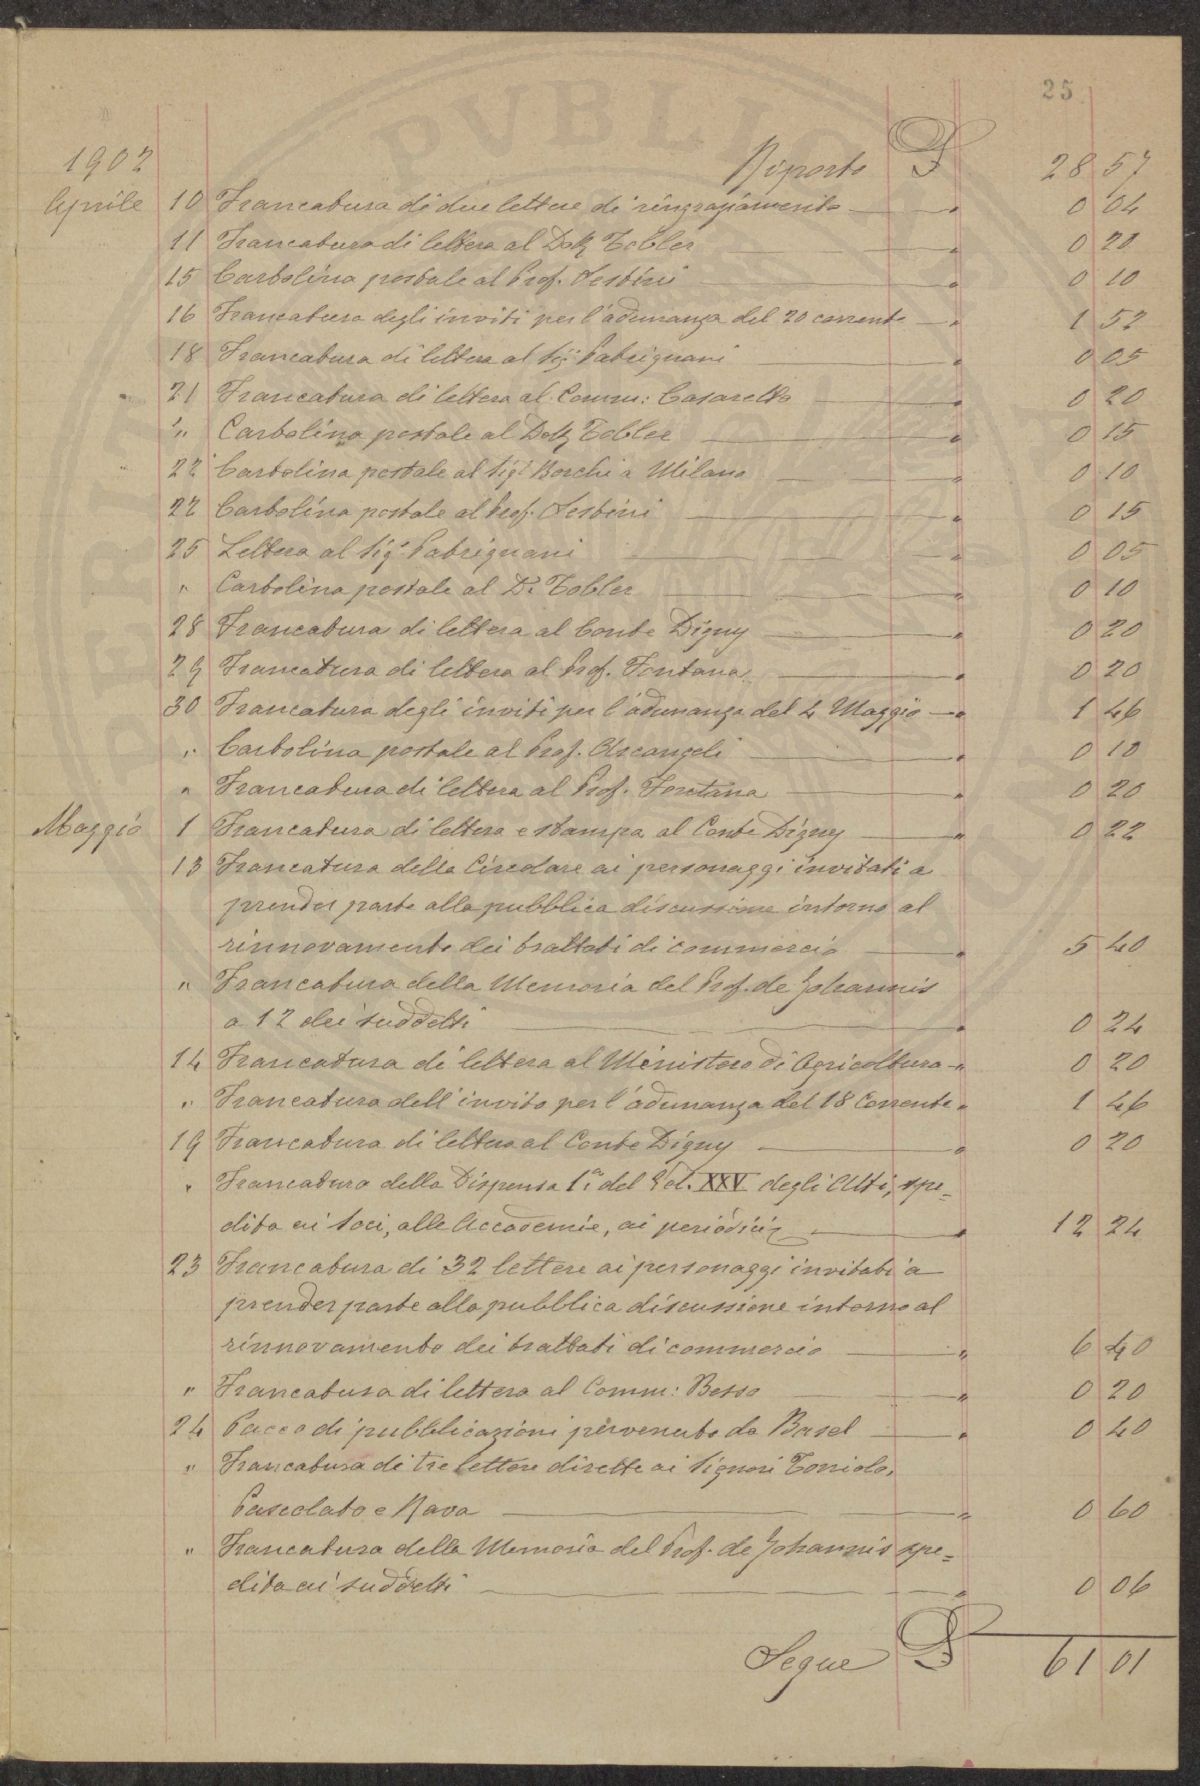 25
1902 Riporto £ 28 57
Aprile 10 Francatura di due lettere di ringraziamento " 0 04
11 Francatura di lettera al Dott Tobler " 0 20
15 Cartolina postale al Prof. Sestini " 0 10
16 Francatura degli inviti per l'adunanza del 20 corrente " 1 52
18 Francatura di lettera al Sig. Patrignani " 0 05
21 Francatura di lettera al Comm: Casaretto " 0 20
" Cartolina postale al Dott Tobler " 0 15
22 Cartolina postale al Sig. Borchi a Milano " 0 10
22 Cartolina postale al Prof. Sestini " 0 15
25 Lettera al Sig. Patrignani " 0 05
" Cartolina postale al Dr Tobler " 0 10
28 Francatura di lettera al Conte Digny " 0 20
29 Francatura di lettera al Prof. Fontana " 0 20
30 Francatura degli inviti per l'adunanza del 4 Maggio " 1 46
" Cartolina postale al Prof. Arcangeli " 0 10
" Francatura di lettera al Prof. Fontana " 0 20
Maggio 1 Francatura di lettera e stampa al Conte Digny " 0 22
13 Francatura della Circolare ai personaggi invitati a
prender parte alla pubblica discussione intorno al
rinnovamento dei trattati di commercio " 5 40
" Francatura della Memoria del Prof. de Johannis
a 12 dei suddetti " 0 24
14 Francatura di lettera al Ministero di Agricoltura " 0 20
" Francatura dell'invito per l'adunanza del 18 Corrente " 1 46
19 Francatura di lettera al Conte Digny " 0 20
" Francatura della Dispensa 1a del Vol. XXV degli Atti, spe=
dita ai Soci, alle Accademie, ai periodici " 12 24
23 Francatura di 32 lettere ai personaggi invitati a
prender parte alla pubblica discussione intorno al
rinnovamento dei trattati di commercio " 6 40
" Francatura di lettera al Comm: Besso " 0 20
24 Pacco di pubblicazioni pervenuto da Basel " 0 40
" Francatura di tre lettere dirette ai Signori Toniolo,
Pascolato e Rava " 0 60
" Francatura della Memoria del Prof. de Johannis spe=
dita ai suddetti " 0 06
Segue £ 61 01